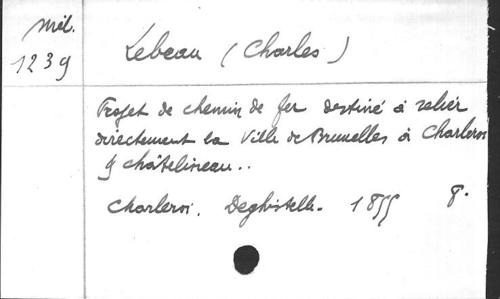 Mél.
1239
Lebeau (Charles)
Projet de chemin de fer destiné à relier
directement la Ville de Bruxelles à Charleroi
& Châtelineau..
Charleroi. Deghistelle. 1855 8°